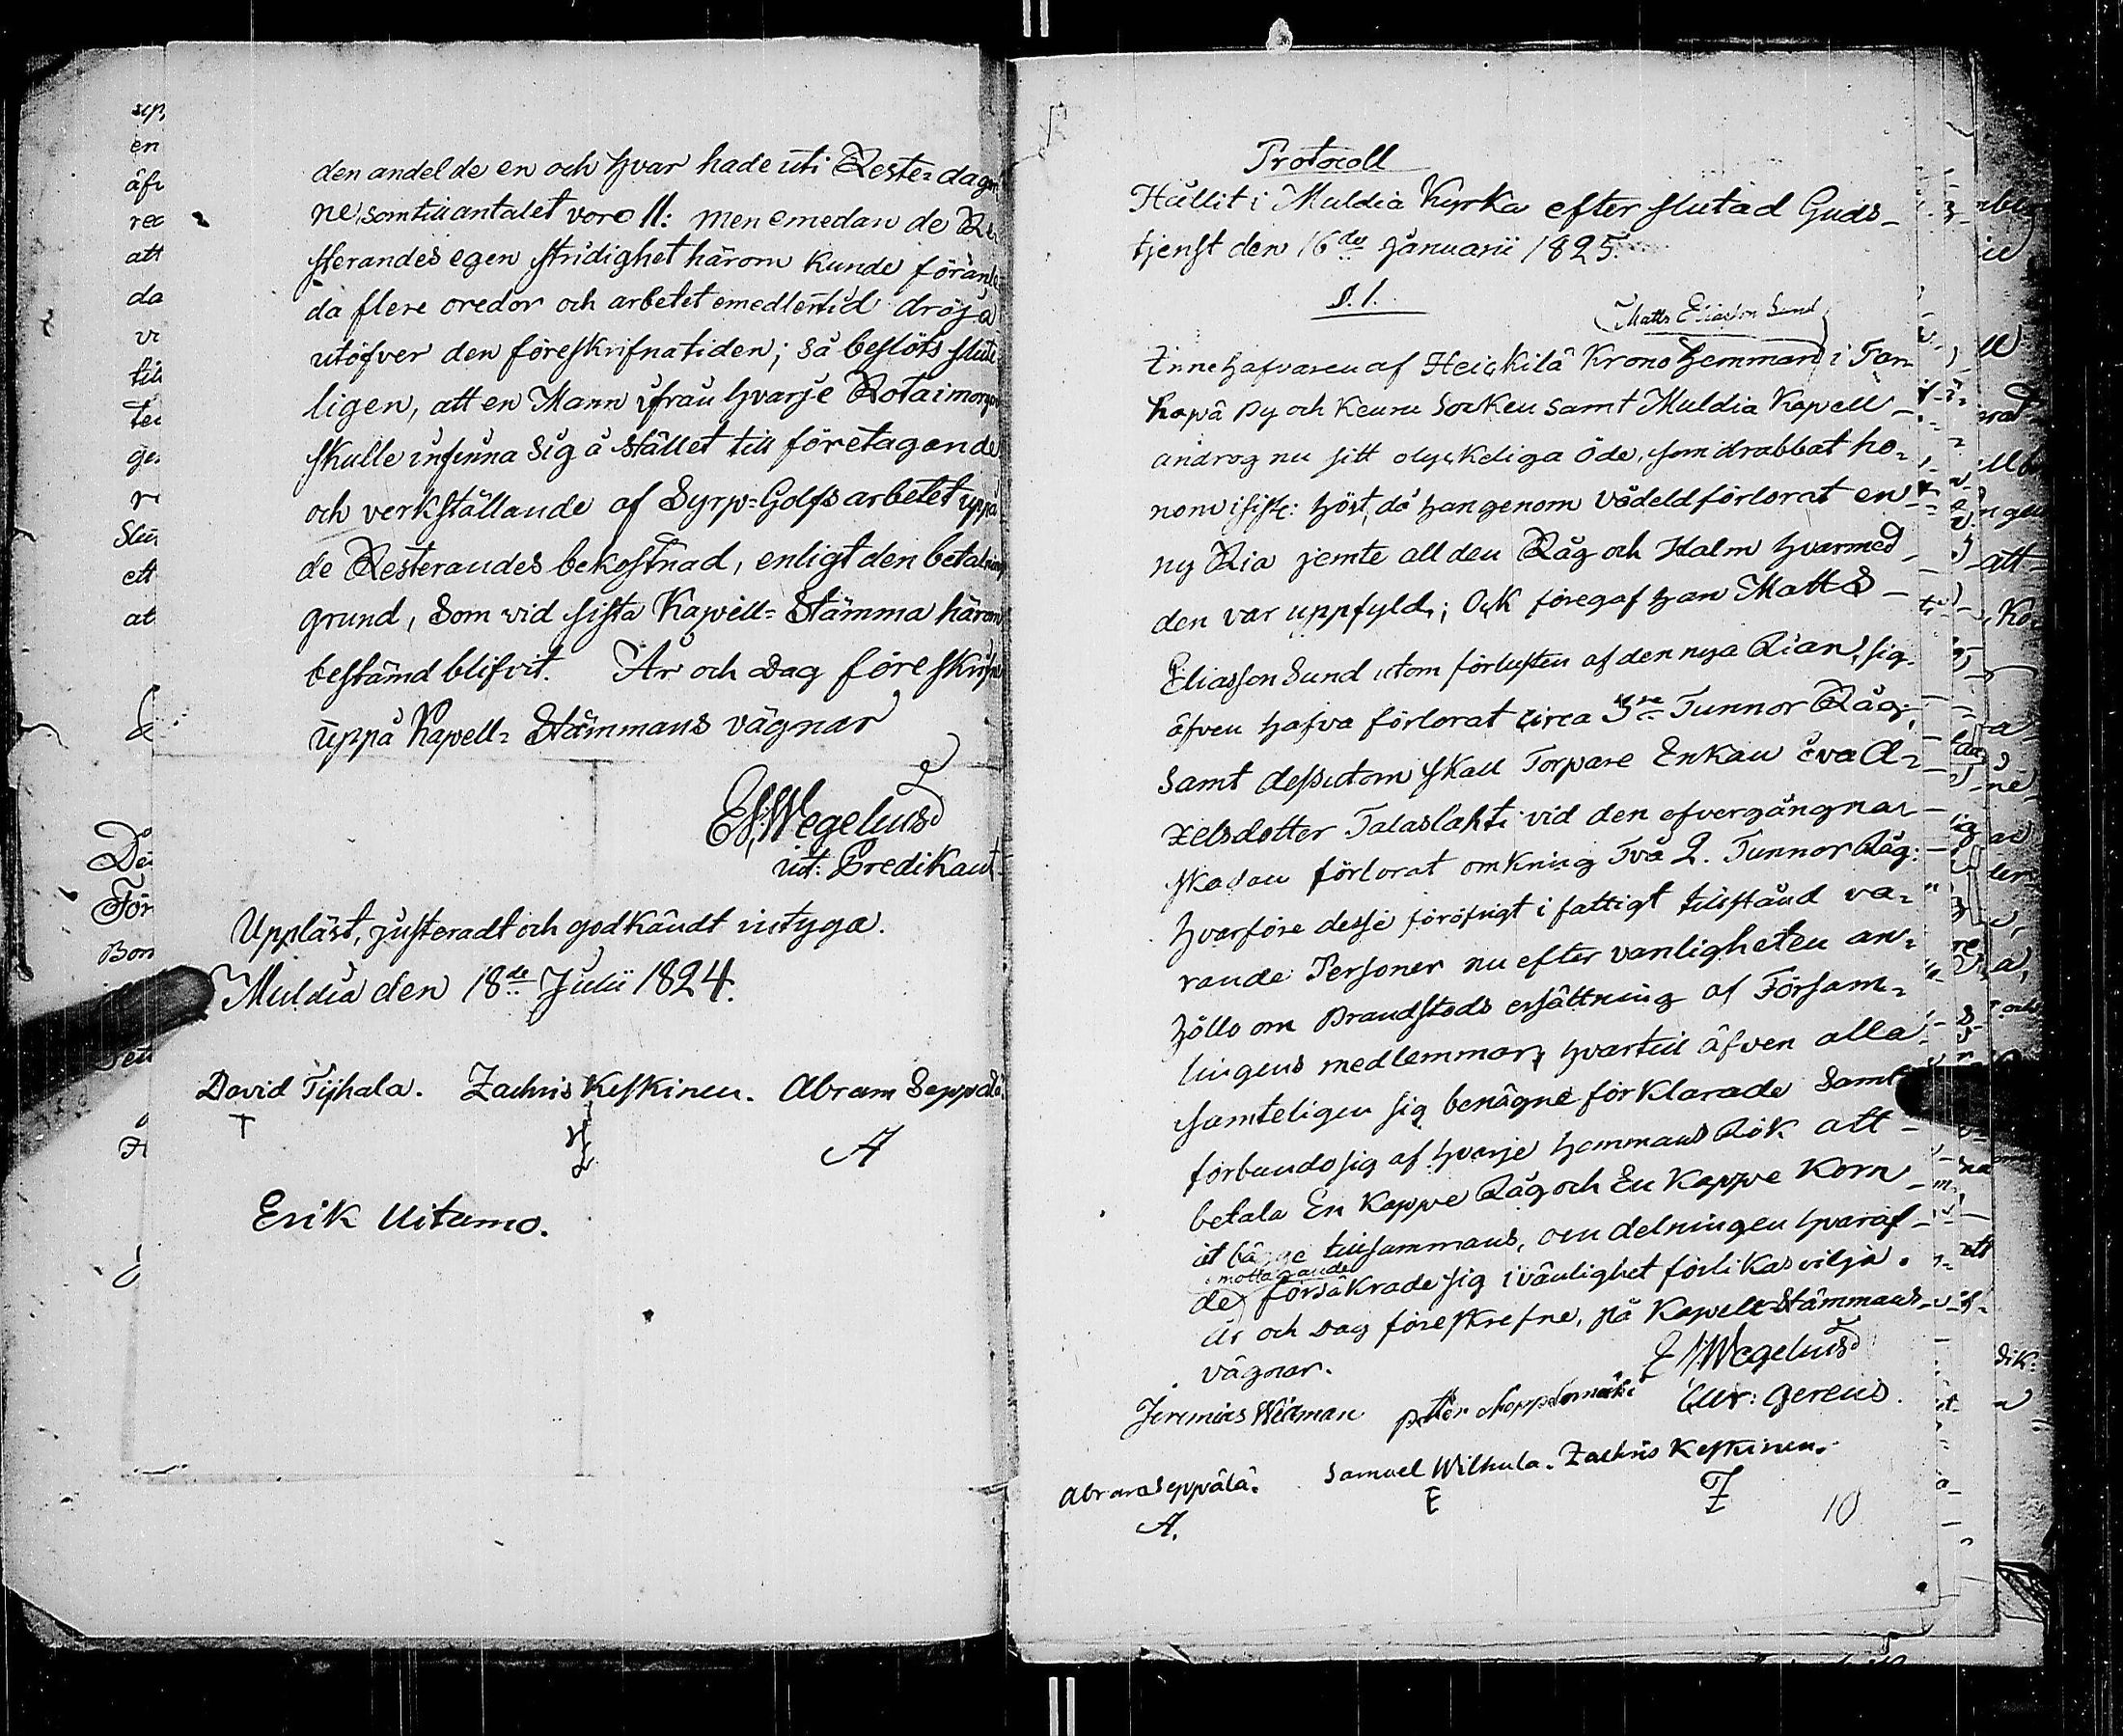 den andel de en och hvar hade uti Reste=dagar
ne, som till antalet voro 11: men emedan de Re
sterandes egen stridighet härom kunde föranle
da flere oredor och arbetet emedlertid dröja
utöfver den föreskrifna tiden; så beslöts slute
ligen, att en Mann ifrån hvarje Rota i morgon
skulle infinna sig å stället till företagande
och verkställande af Syrp=Golfs arbetet uppå
de Resterandes bekostnad, enligt den betalnings
grund, Som vid sista Kapell=Stämma härom
bestämd blifvit. År och Dag föreskrifne
uppå Kapell=Stämmans vägnar
Wegelius
Predikant
Uppläst, justeradt och godkändt intyga.
Muldia den 18de Julii 1824.
David Tijhala. Zachris Keskinen. Abram Seppälä
T Z A
Erik Uitamo.
Protocoll
Hållit i Muldia Kyrka efter slutad Guds-
tjenst den 16de Januarii 1825.
§. 1.
Matts Eliasson Sund
Innehafvaren af Heickilä Krono Hemman i Tar-
hapä By och Keuru Socken samt Muldia Kapell-
androg nu sitt olyckeliga öde, som drabbat ho=
nom i sistl: höst, då han genom vådeld förlorat en
ny Ria jemte all den Råg och Halm hvarmed
den var uppfyld; Ock föregaf han Matts
Eliasson Sund utom förlusten af den nya Rian, sig
äfven hafva förlorat circa 5re Tunnor Råg;
samt dessutom skall Torpare Enkan Eva A=
xelsdotter Talaslahti vid den öfvergångna
skadan förlorat omkring Två 2. Tunnor Råg:
Hvarföre desse föröfrigt i fattigt tillstånd va=
rande Personer nu efter vanligheten an=
höllo om Brandstods ersättning af Församm=
lingens medlemmar, hvartill äfven alla
samteligen sig benägne förklarade samt
förbundo sig af hvarje Hemmans Rök att
betala En Kappe Råg och En Kappe Korn
åt båda tillsammans, om delningen hvaraf
mottagande
de försäkrade sig i vänlighet förlikas vilja.
År och Dag föreskrefne, på Kapell-Stämmans
vägnar. Wegelius
Jeremias Widman petter Seppälamäki Cur: gerens.
Abram Seppälä. Samuel Wilkula. Zachris Keskinen.
A. E Z
10